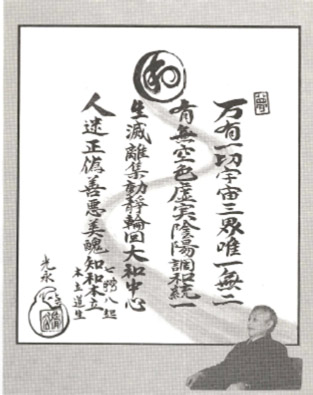 和
万有一切宇宙三界唯一無二
有無空色虚実陰陽調和統一
生滅離集動静輪回大和中心
人迷正偽善悪美醜知和本立
七転八起
本立道生
光永